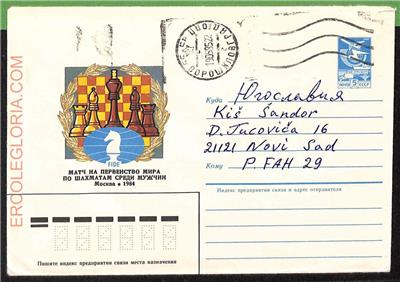 ERCOLEGLORIA.COM
FIDE
МАТЧ НА ПЕРВЕНСТВО МИРА
ПО ШАХМАТАМ СРЕДИ МУЖЧИН
Москва • 1984
Куда Югославия
Kiš Šandor
D. Tucoviča 16
21121 Novi Sad
Кому P. FAH 29
Индекс предприятия связи и адрес отправителя
Пишите индекс предприятия связи места назначения
5